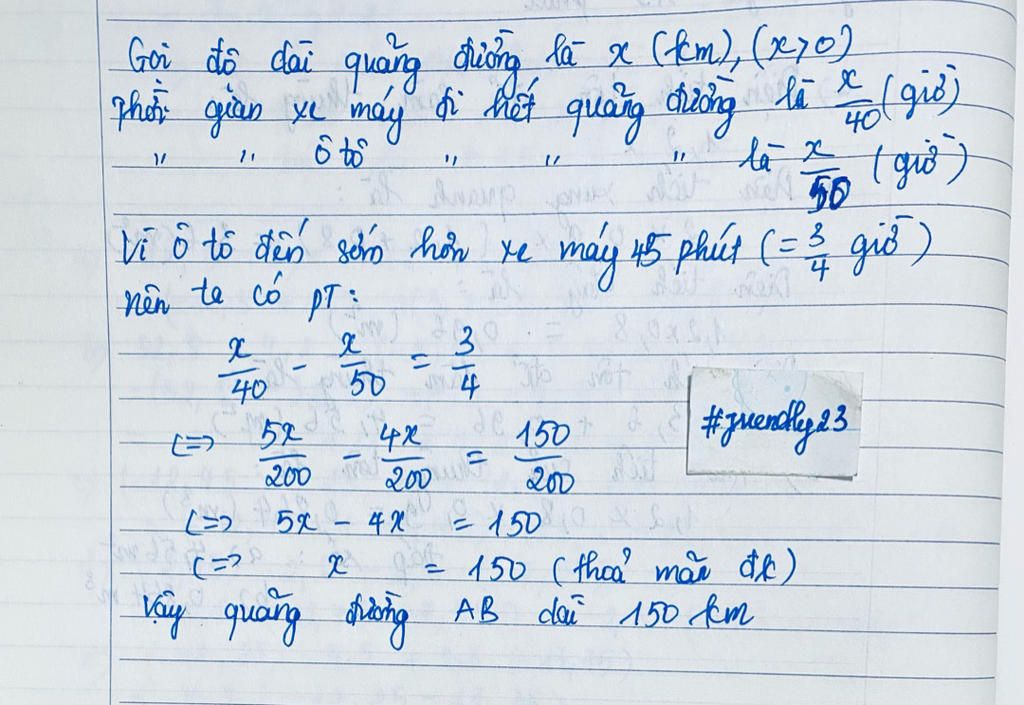 Gọi độ dài quãng đường là x (km), (x>0)
Thời gian xe máy đi hết quãng đường là x/40 (giờ)
" " ô tô " " " là x/50 (giờ)
Vì ô tô đến sớm hơn xe máy 45 phút (= 3/4 giờ)
nên ta có PT:
x/40 - x/50 = 3/4
<=> 5x/200 - 4x/200 = 150/200
<=> 5x - 4x = 150
<=> x = 150 (thoả mãn đk)
Vậy quãng đường AB dài 150 km